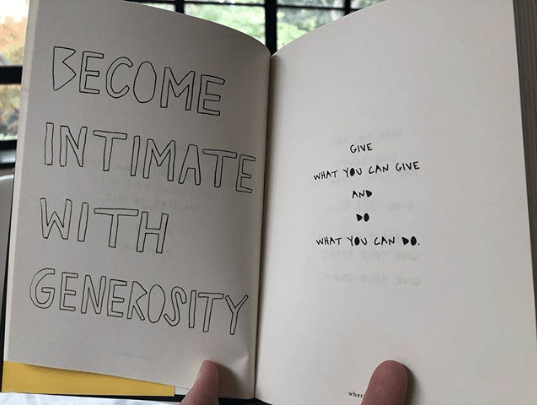 BECOME
INTIMATE
WITH
GENEROSITY
GIVE
WHAT YOU CAN GIVE
AND
DO
WHAT YOU CAN DO.